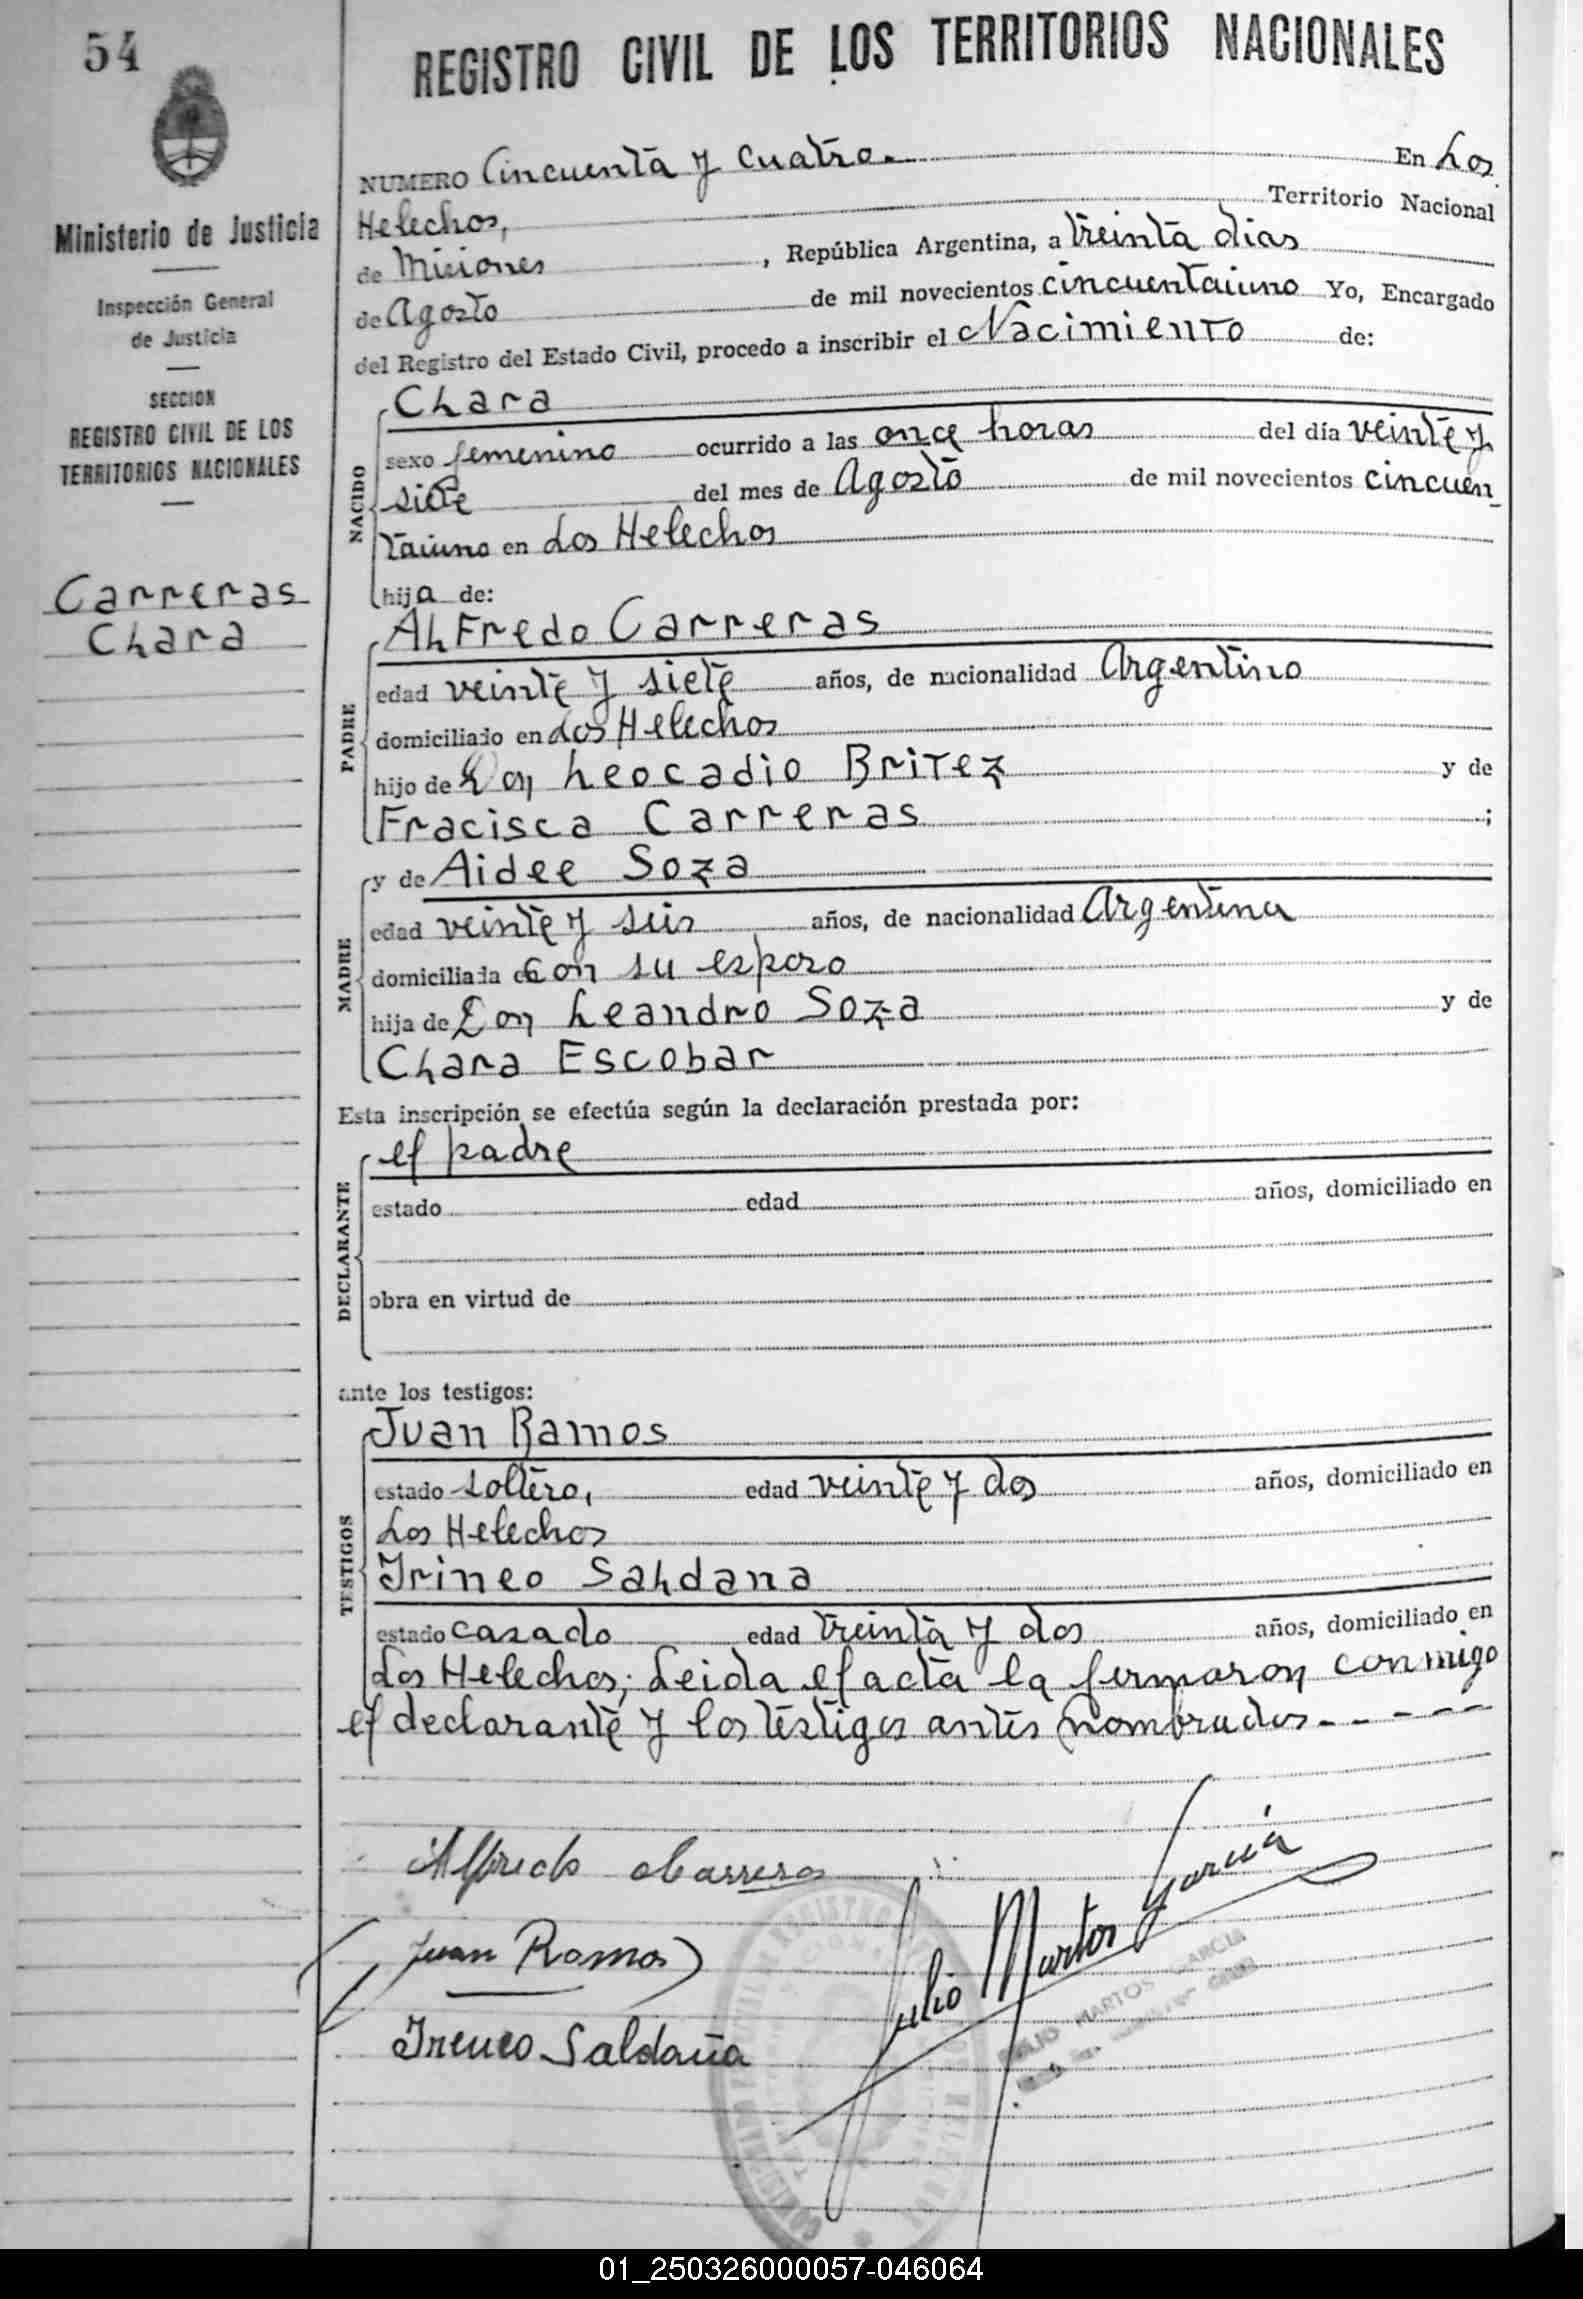 54
REGISTRO CIVIL DE LOS TERRITORIOS NACIONALES
Ministerio de Justicia
Inspección General
de Justicia
SECCION
REGISTRO CIVIL DE LOS
TERRITORIOS NACIONALES
Carreras
Clara
NUMERO Cincuenta y cuatro. En Los
Helechos, Territorio Nacional
de Misiones, República Argentina, a treinta dias
de Agosto de mil novecientos cincuentaiuno Yo, Encargado
del Registro del Estado Civil, procedo a inscribir el Nacimiento de:
NACIDO
Clara
sexo femenino ocurrido a las once horas del día veinte y
siete del mes de Agosto de mil novecientos cincuen
taiuno en Los Helechos
hija de:
PADRE
Alfredo Carreras
edad veinte y siete años, de nacionalidad Argentino
domiciliado en Los Helechos
hijo de Don Leocadio Britez y de
Fracisca Carreras ;
MADRE
y de Aidee Soza
edad veinte y seis años, de nacionalidad Argentina
domiciliada con su esposo
hija de Don Leandro Soza y de
Clara Escobar
Esta inscripción se efectúa según la declaración prestada por:
DECLARANTE
el padre
estado edad años, domiciliado en
obra en virtud de
ante los testigos:
TESTIGOS
Juan Ramos
estado soltero, edad veinte y dos años, domiciliado en
Los Helechos
Irineo Saldana
estado casado edad treinta y dos años, domiciliado en
Los Helechos; Leida el acta la firmaron conmigo
el declarante y los testigos antes nombrados - - - - -
Alfredo Carreras
Juan Ramos
Julio Martos Garcia
JULIO MARTOS GARCIA
Ireneo Saldaña
01_250326000057-046064